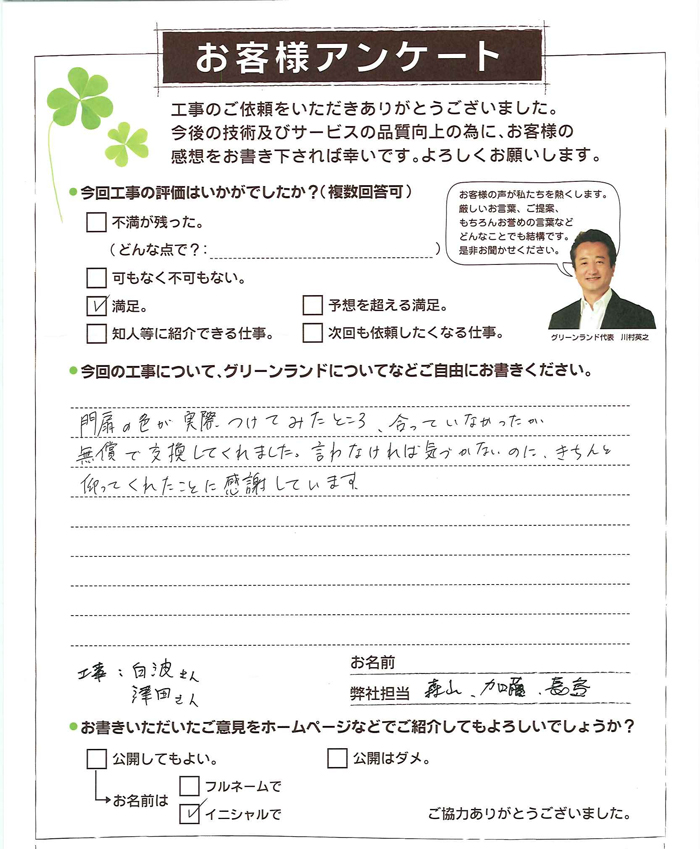 お客様アンケート
工事のご依頼をいただきありがとうございました。
今後の技術及びサービスの品質向上の為に、お客様の
感想をお書き下されば幸いです。よろしくお願いします。
今回工事の評価はいかがでしたか?(複数回答可)
不満が残った。
(どんな点で?: )
可もなく不可もない。
満足。
予想を超える満足。
知人等に紹介できる仕事。
次回も依頼したくなる仕事。
お客様の声が私たちを熱くします。
厳しいお言葉、ご提案、
もちろんお誉めの言葉など
どんなことでも結構です。
是非お聞かせください。
グリーンランド代表 川村英之
今回の工事について、グリーンランドについてなどご自由にお書きください。
門扉の色が実際つけてみたところ、合っていなかったか
無償で交換してくれました。言わなければ気づかないのに、きちんと
仰ってくれたことに感謝しています
工事:白波さん
澤田さん
お名前
弊社担当 森山、加藤、長
お書きいただいたご意見をホームページなどでご紹介してもよろしいでしょうか?
公開してもよい。
公開はダメ。
お名前は
フルネームで
イニシャルで
ご協力ありがとうございました。